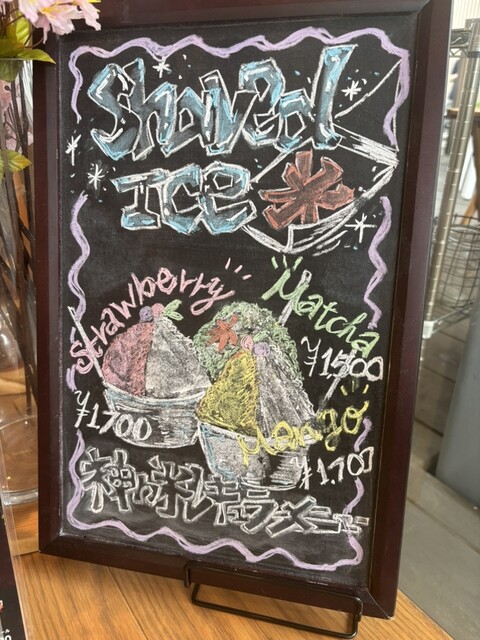 Shaved
ICE 氷
Strawberry
¥1700
Matcha
¥1500
Mango
¥1,700
氷レギュラーメニュー